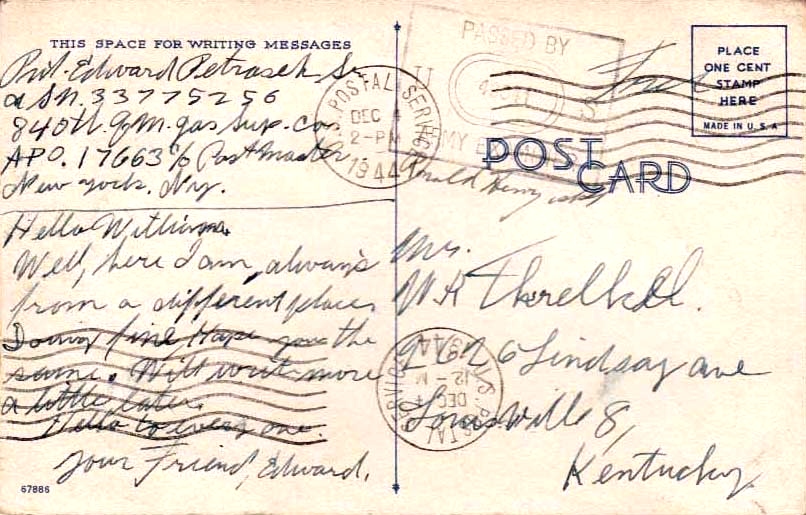 THIS SPACE FOR WRITING MESSAGES
Pvt. Edward Petrasek Sr
aSN. 33775256
840th. Q.M. gas Sup. Co.
APO. 17663 % Postmaster
New York. Ny.
Hello William.
Well, here I am, always
from a different place.
Doing fine Hope you the
same. Will write more
a little later.
Hello to everyone.
Your Friend, Edward.
67886
PASSED BY
U S
ARMY
U.S. POSTAL SERVICE
DEC 4
2-PM
1944
Free
PLACE
ONE CENT
STAMP
HERE
MADE IN U.S.A
POST CARD
Mr.
W K Threlkel.
2626 Lindsay ave
Louisville 8,
Kentucky
U.S. POSTAL SERVICE
DEC 4
12 M
1944